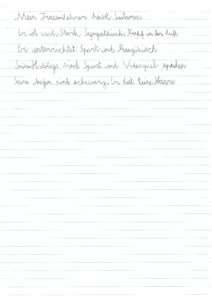 Mein Traumlehrer heißt Santana.
Er ist cool, Stark, Sympathisch, in der luft
Er unterrichtet Sport und Französisch
Seine Hobbys sind Sport und Videospiel spielen
Seine Augen sind schwarz. Er hat keine Haare